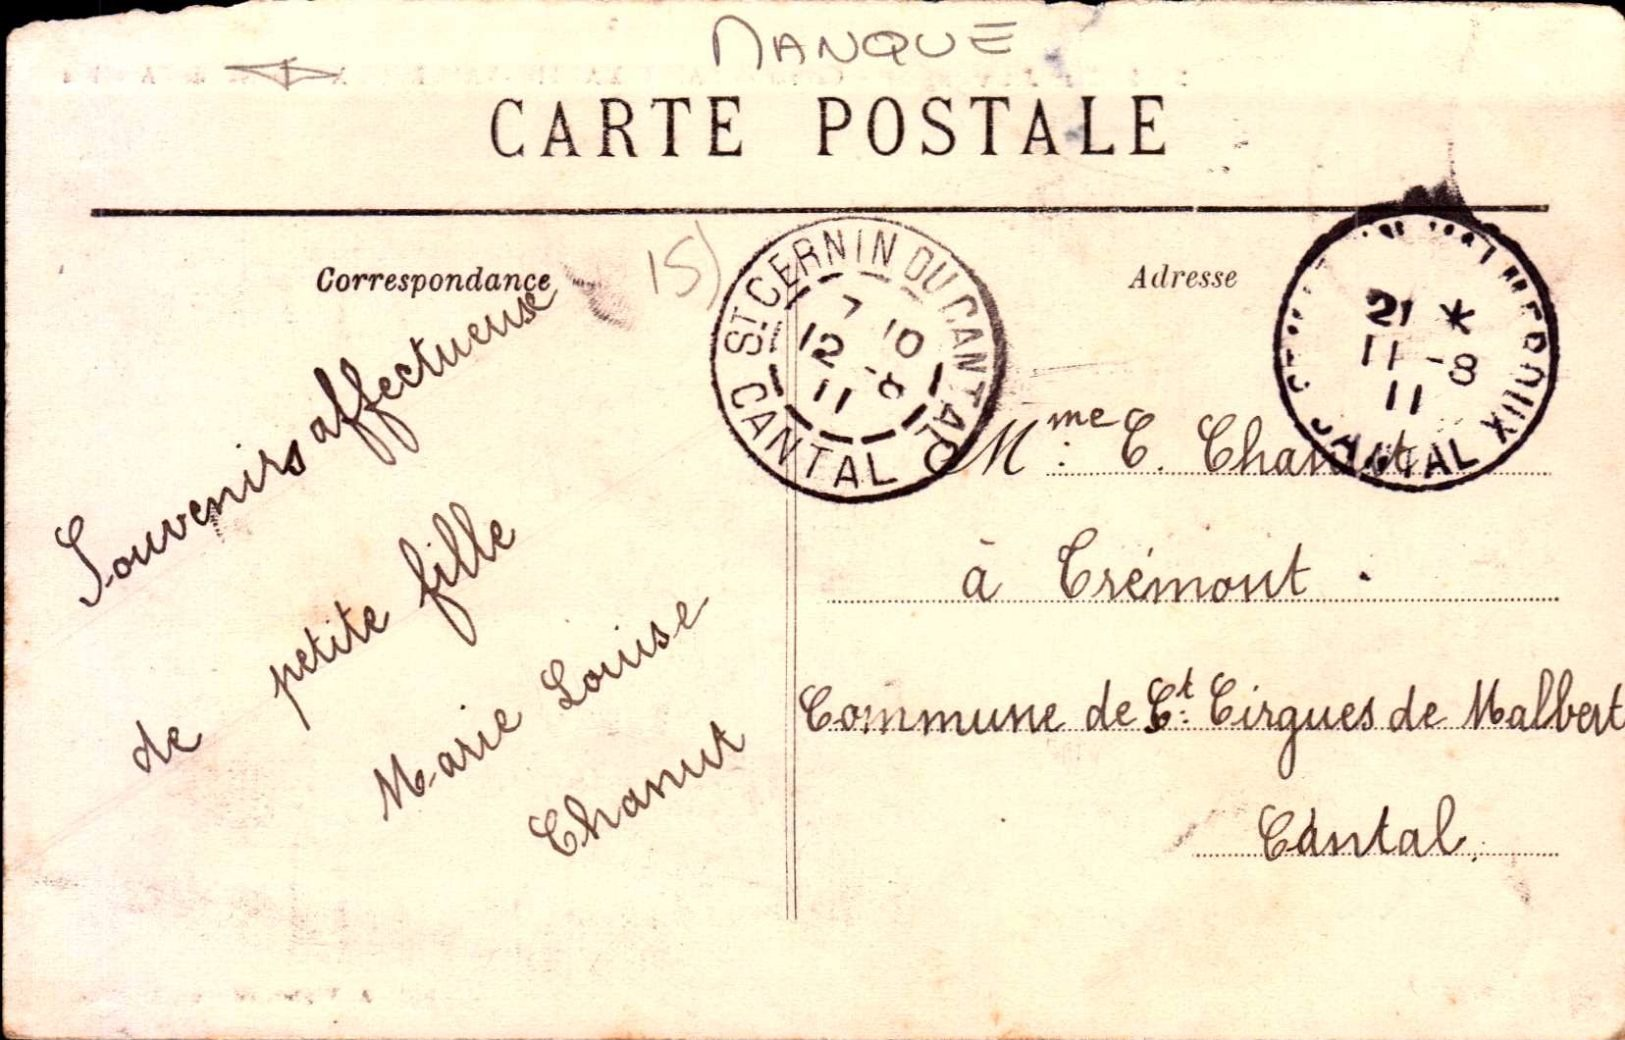 MANQUE
CARTE POSTALE
Correspondance
15)
Adresse
ST CERNIN DU CANTAL
CANTAL
7 10
12 -8
11
21 *
11 -8
11
CANTAL
Souvenirs affectueuse
de petite fille
Marie Louise
Chanut
Mme C. Chanut
à Trémont .
Commune de St Cirgues de Malbert
Cantal.